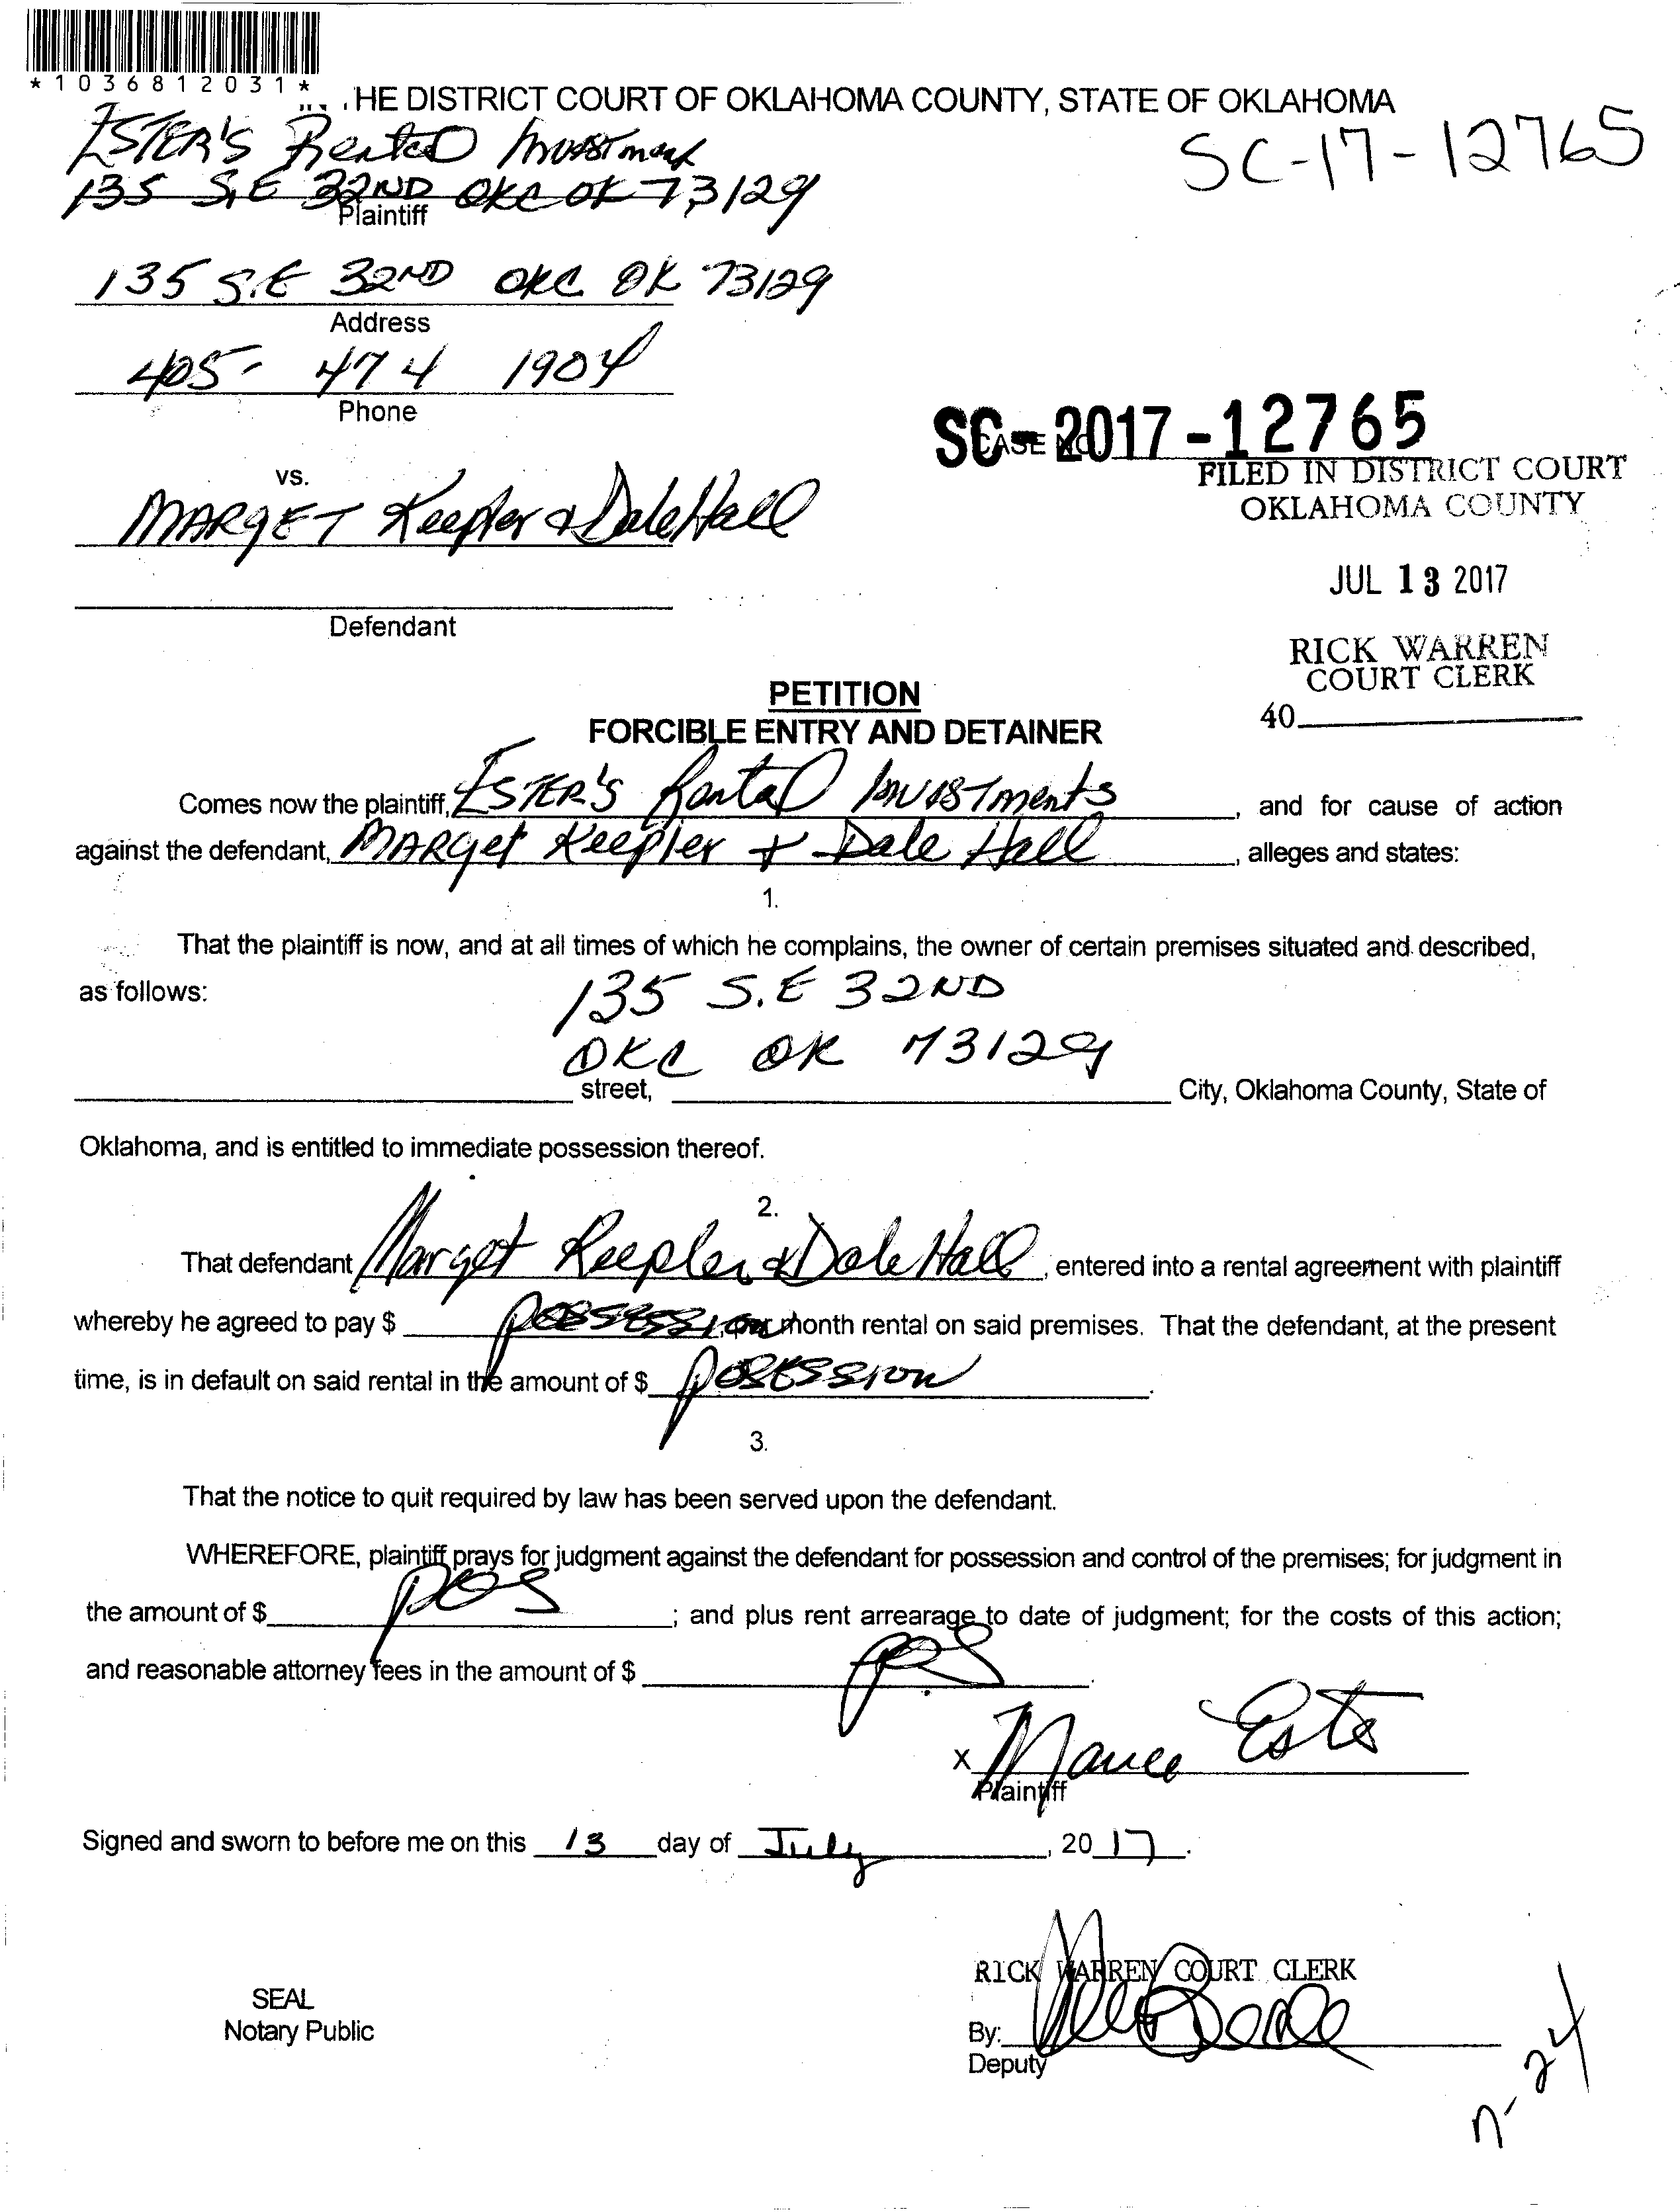 *1036812031*
HE DISTRICT COURT OF OKLAHOMA COUNTY, STATE OF OKLAHOMA
ESTER'S Rental Investment
SC-17-12765
135 S.E 32ND OKC OK 73129
Plaintiff
135 S.E 32ND OKC OK 73129
Address
405- 474 1904
Phone
SC-2017-12765
CASE NO.
FILED IN DISTRICT COURT
OKLAHOMA COUNTY
vs.
MARGET Keepler & Dale Hall
JUL 13 2017
Defendant
RICK WARREN
COURT CLERK
40
PETITION
FORCIBLE ENTRY AND DETAINER
Comes now the plaintiff, ESTER'S Rental Investments, and for cause of action
against the defendant, MARGet Keepler + Dale Hall, alleges and states:
1.
That the plaintiff is now, and at all times of which he complains, the owner of certain premises situated and described,
as follows:
135 S.E 32ND
OKC OK 73129
street, City, Oklahoma County, State of
Oklahoma, and is entitled to immediate possession thereof.
2.
That defendant Marget Keepler & Dale Hall, entered into a rental agreement with plaintiff
whereby he agreed to pay $ possession, per month rental on said premises. That the defendant, at the present
time, is in default on said rental in the amount of $ posession.
3.
That the notice to quit required by law has been served upon the defendant.
WHEREFORE, plaintiff prays for judgment against the defendant for possession and control of the premises; for judgment in
the amount of $ pos; and plus rent arrearage to date of judgment; for the costs of this action;
and reasonable attorney fees in the amount of $ pos.
X
Plaintiff
Signed and sworn to before me on this 13 day of July, 2017.
RICK WARREN COURT CLERK
SEAL
Notary Public
By:
Deputy
n-24